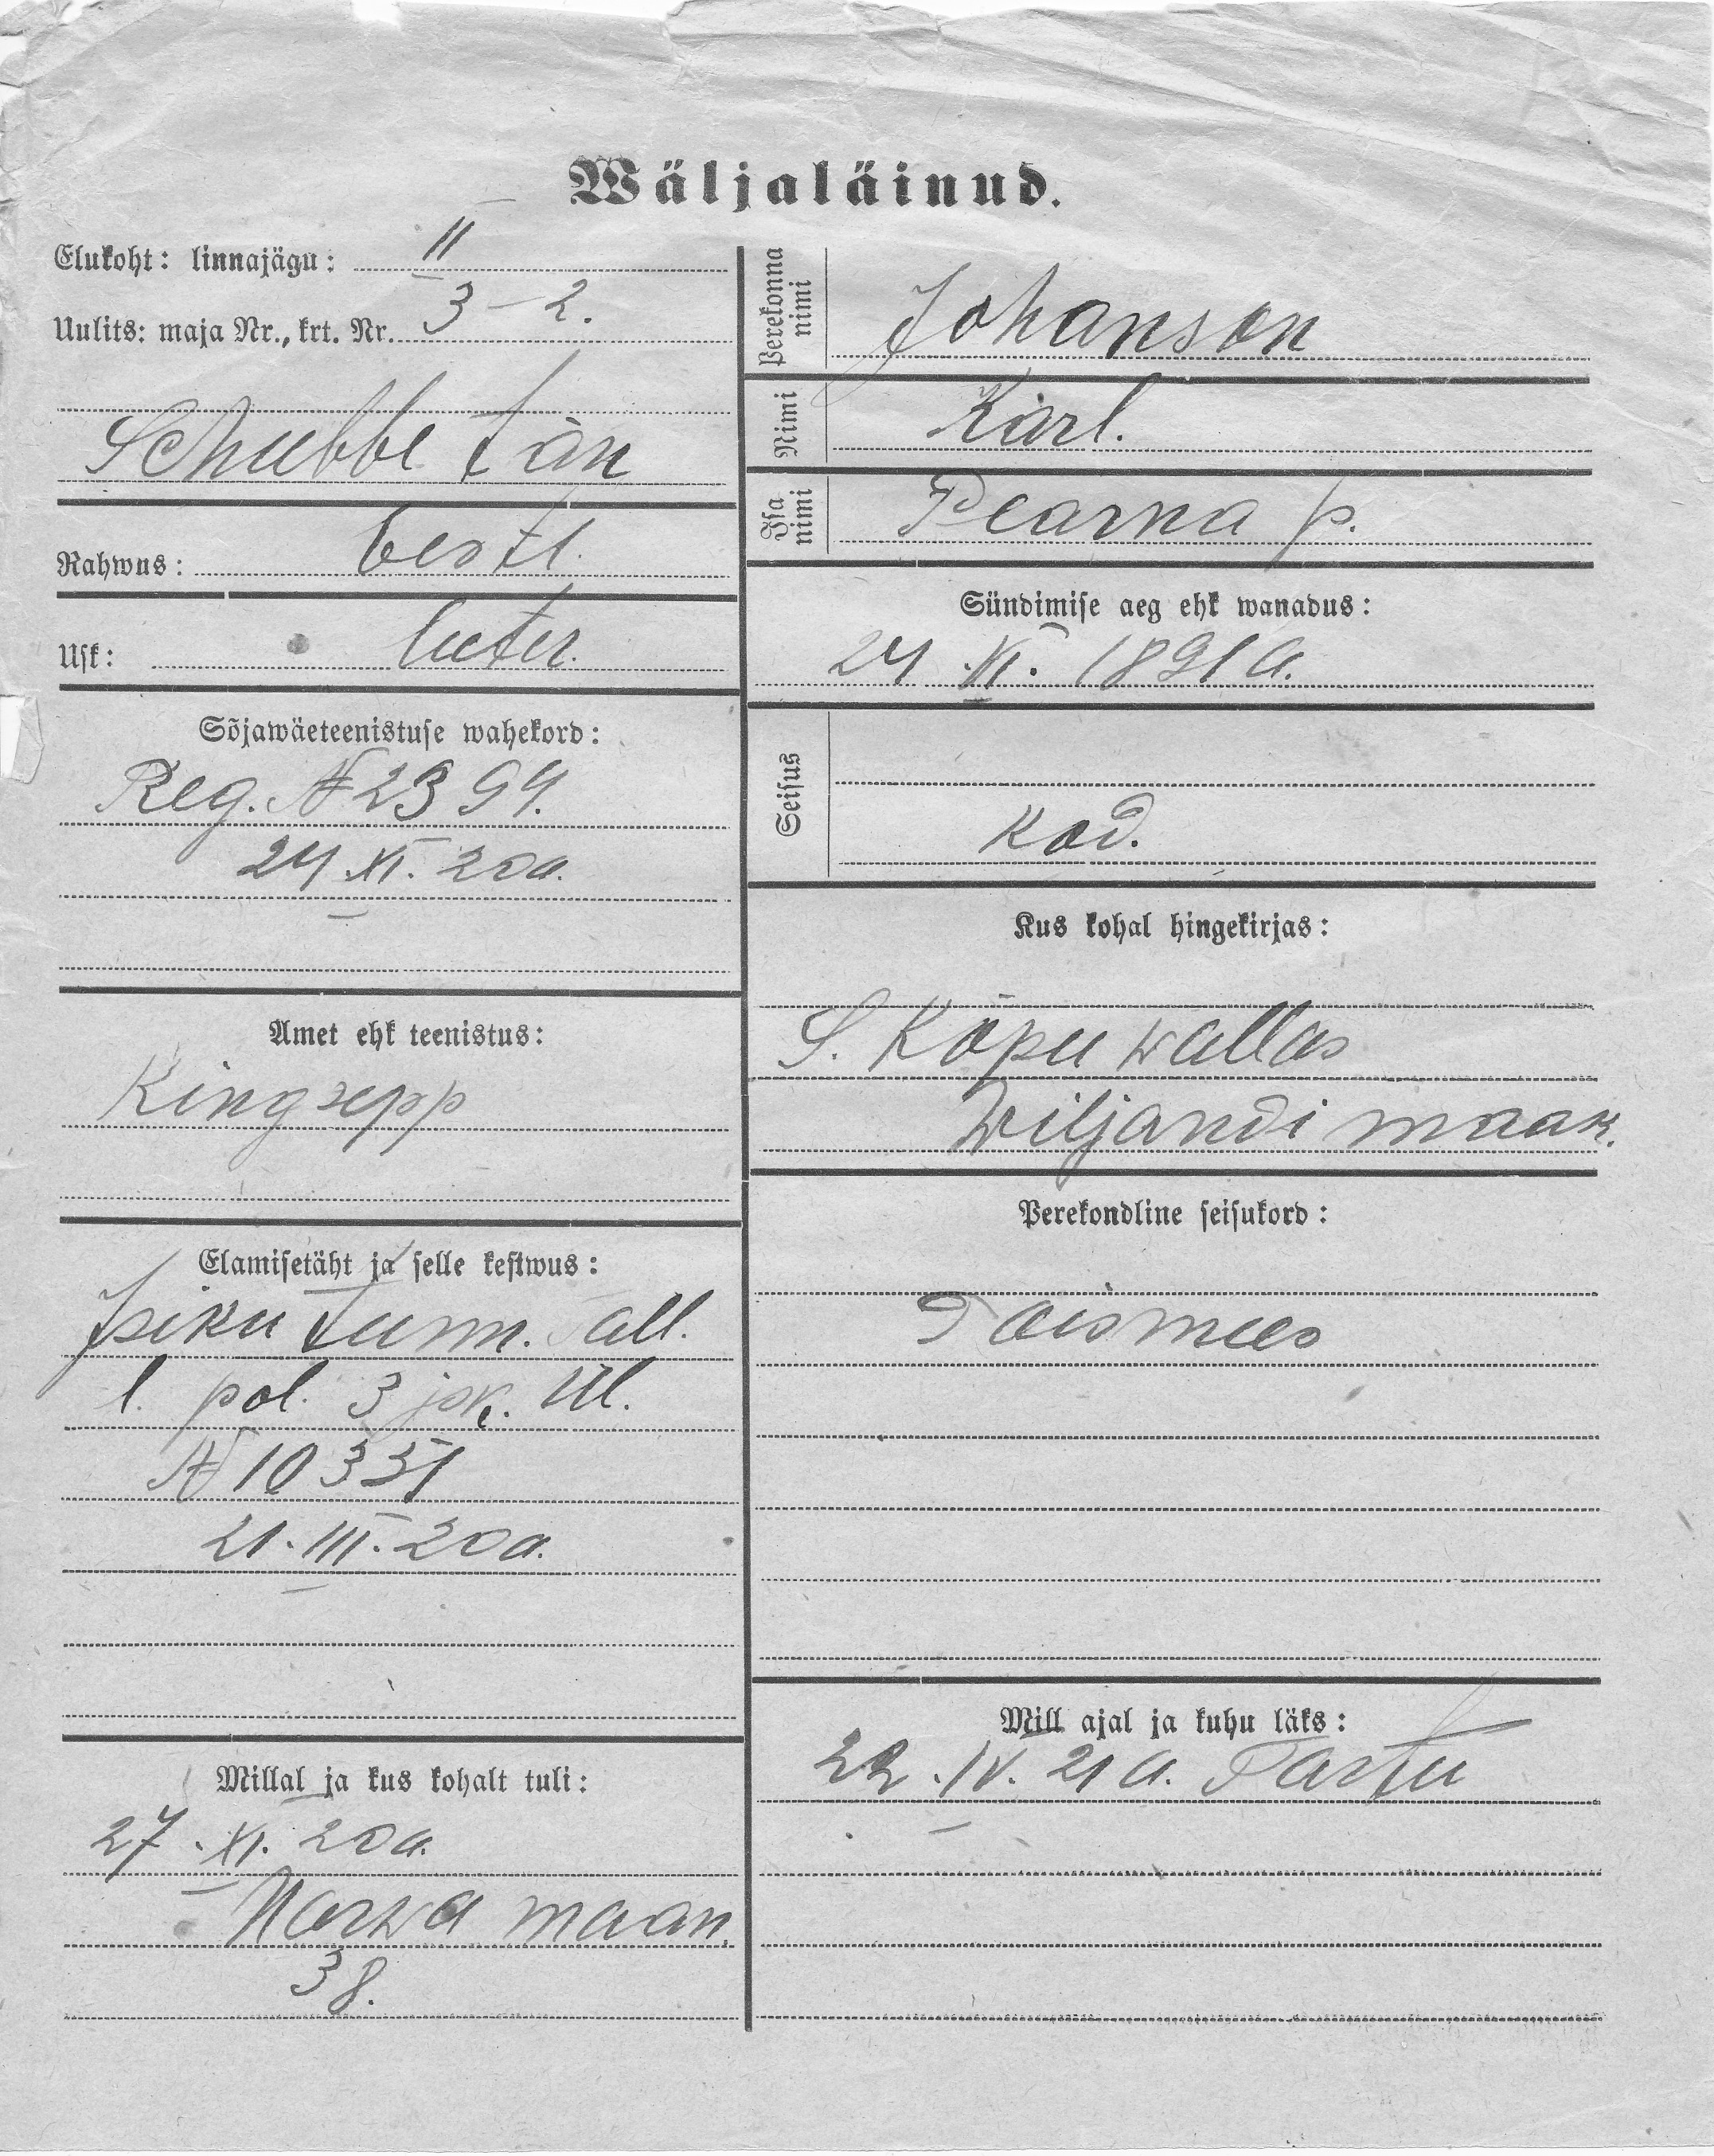 Wäljaläinud.
Elukoht: linnajägu: II
Uulits: maja Nr., krt. Nr. 3-2.
Schubbe tän
Rahwus: Eestl.
Usk: luter.
Sõjawäeteenistuse wahekord:
Reg. № 2394.
24.XI.20a.
Amet ehk teenistus:
Kingsepp
Elamisetäht ja selle kestwus:
Isiku tunn. Tall.
l. pol. 3 jsk. ül.
№ 10331
21.III.20a.
Millal ja kus kohalt tuli:
27.XI.20a.
Narwa maan.
38.
Perekonna nimi Johanson
Nimi Karl.
Isa nimi Pearna p.
Sündimise aeg ehk wanadus:
24.XI.1891a.
Seisus
kod.
Kus kohal hingekirjas:
S. Kõpu wallas
Wiljandi maak.
Perekondline seisukord:
Poismees
Mill ajal ja kuhu läks:
22.IV.21a. Tartu